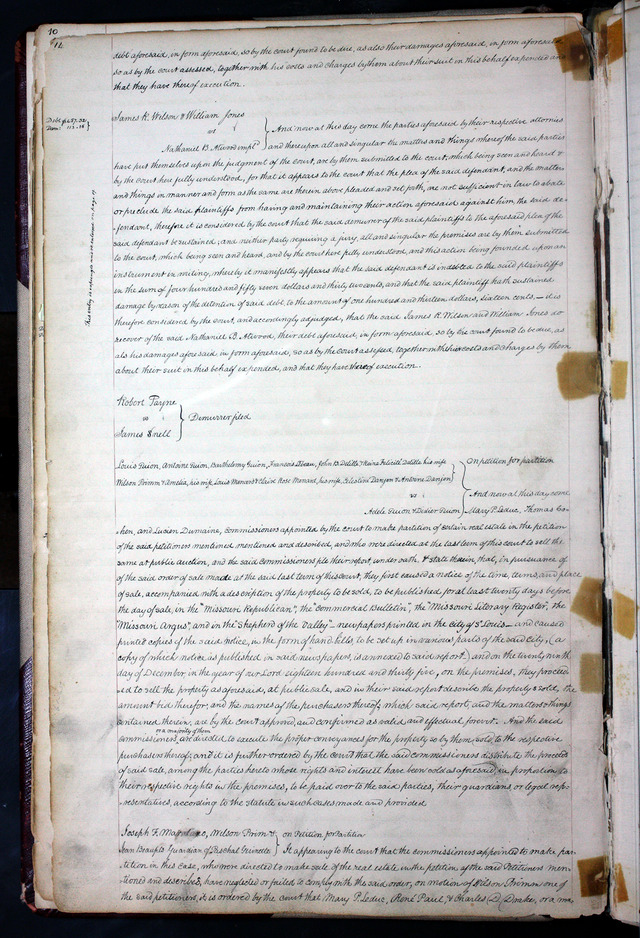 10
12
debt aforesaid, in form aforesaid, so by the court found to be due, as also their damages aforesaid, in form aforesaid
so as by the court assessed, together with his costs and charges by them about their suit in this behalf expended and
that they have thereof execution.
James R. Wilson & William Jones
vs
Nathaniel B. Atwood impl
Debt $457.32
Dam: 113.16
And now at this day come the parties aforesaid by their respective attornies
and thereupon all and singular the matters and things whereof the said parties
have put themselves upon the judgment of the court, are by them submitted to the court, which being seen and heard &
by the court here fully understood, for that it appears to the court that the plea of the said defendant, and the matters
and things in manner and form as the same are therein above pleaded and set forth, are not sufficient in law to abate
or preclude the said plaintiffs from having and maintaining their action aforesaid against him the said de-
fendant, therefore it is considered by the court that the said demurrer of the said plaintiffs to the aforesaid plea of the
said defendant be sustained, and neither party requiring a jury, all and singular the premises are by them submitted
to the court, which being seen and heard, and by the court here fully understood, and this action being founded upon an
instrument in writing, whereby it manifestly appears that the said defendant is indebted to the said plaintiffs
in the sum of four hundred and fifty seven dollars and thirty two cents, and that the said plaintiff hath sustained
damage by reason of the detention of said debt, to the amount of one hundred and thirteen dollars, sixteen cents, — it is
therefore considered by the court, and accordingly adjudged, that the said James R. Wilson and William Jones do
recover of the said Nathaniel B. Atwood, their debt aforesaid, in form aforesaid, so by the court found to be due, as
als his damages aforesaid in form aforesaid, so as by the court assessed, together with their costs and charges by them
about their suit in this behalf expended, and that they have thereof execution.
Robert Payne
vs
James Snell
Demurrer filed
Louis Guion, Antoine Guion, Barthelemy Guion, Francois John B. Delille & his wife
Wilson Primm & Amelia, his wife, Louis Menard & Rose Menard, his wife, Celestine Danjen & Antoine Danjen
vs
Adele Guion & Didier Guion
On petition for partition
And now at this day come
Mary P. Leduc, Thomas Co-
hen, and Lucien Dumaine, commissioners appointed by the court to make partition of certain real estate in the petition
of the said petitioners mentioned mentioned and described, and who were directed at the last term of this court to sell the
same at public auction, and the said commissioners file their report under oath, & state therein, that, in pursuance of
of the said order of sale made at the said last term of this court, they first caused a notice of the time, terms, and place
of sale, accompanied with a description of the property to be sold, to be published for at least twenty days before
the day of sale, in the "Missouri Republican", the "Commercial Bulletin", the "Missouri Literary Register", the
"Missouri Argus", and in the "Shepherd of the Valley" – newspapers printed in the city of St Louis – and caused
printed copies of the said notice, in the form of hand bills, to be set up in various parts of the said city, (a
copy of which notice is published in said newspapers, is annexed to said report.) and on the twenty ninth
day of December, in the year of our Lord eighteen hundred and thirty five, on the premises, they proceed
ed to sell the property as aforesaid, at public sale, and in their said report describe the property & sold, the
amount bid therefor, and the names of the purchasers thereof, which said report, and the matters & things
contained therein, are by the court approved and confirmed as valid and effectual forever. And the said
or a majority of them
commissioners, are directed to execute the proper conveyances for the property so by them sold, to the respective
purchasers thereof, and it is further ordered by the court that the said commissioners distribute the proceeds
of said sale, among the parties hereto whose rights and interest have been sold as aforesaid, in proportion to
their respective rights in the premises, to be paid over to the said parties, their guardians or legal rep-
resentatives, according to the statute in such cases made and provided.
Joseph F. Wilson Primm &
Jean Beaupte Guardian of Paschal
on Petition for Partition
It appearing to the court that the commissioners appointed to make par-
tition in this case, who were directed to make sale of the real estate in the petition of the said Petitioners men-
tioned and described, have neglected or failed to comply with the said order, on motion of Wilson Primm one of
the said petitioners, it is ordered by the court that Mary P. Leduc, René Paul, & Charles D. Drake, or a ma